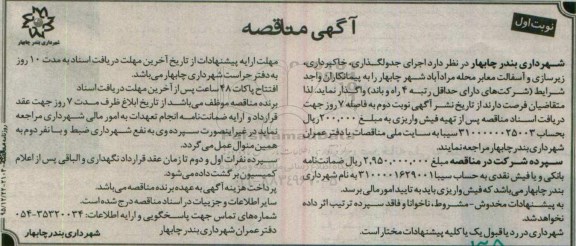 نوبت اول
آگهی مناقصه
شهرداری بندر چابهار
شهرداری بندر چابهار در نظر دارد اجرای جدولگذاری، خاکبرداری،
زیرسازی و آسفالت معابر محله مرادآباد شهر چابهار را به پیمانکاران واجد
شرایط (شرکت‌های دارای حداقل رتبه ۴ راه و باند) واگذار نماید. لذا
متقاضیان فرصت دارند از تاریخ نشر آگهی نوبت دوم به فاصله ۷ روز جهت
دریافت اسناد مناقصه پس از تهیه فیش واریزی به مبلغ ۲۰۰,۰۰۰ ریال
بحساب ۳۱۰۰۰۰۰۰۲۵۰۰۳ سیبا به سایت ملی مناقصات یا دفتر عمران
شهرداری بندر چابهار مراجعه نمایند.
سپرده شرکت در مناقصه مبلغ ۲,۹۵۰,۰۰۰,۰۰۰ ریال ضمانت‌نامه
بانکی و یا فیش نقدی به حساب سیبا ۳۱۰۰۰۰۱۶۲۹۰۰۱ به نام شهرداری
بندر چابهار می‌باشد که فیش واریزی باید به تایید امور مالی برسد.
به پیشنهادات مخدوش - مشروط، ناخوانا و فاقد سپرده ترتیب اثر داده
نخواهد شد.
شهرداری در رد یا قبول یک یا کلیه پیشنهادات مختار است.
مهلت ارایه پیشنهادات از تاریخ آخرین مهلت دریافت اسناد به مدت ۱۰ روز
به دفتر حراست شهرداری چابهار می‌باشد.
افتتاح پاکات ۴۸ ساعت پس از آخرین مهلت دریافت اسناد
برنده مناقصه موظف می‌باشد از تاریخ ابلاغ ظرف مدت ۷ روز جهت عقد
قرارداد و ارایه ضمانت‌نامه انجام تعهدات به امور مالی شهرداری مراجعه
نماید در غیر اینصورت سپرده وی به نفع شهرداری ضبط و با نفر دوم به
همین منوال عمل می‌گردد.
سپرده نفرات اول و دوم تا زمان عقد قرارداد نگهداری و الباقی پس از اعلام
کمیسیون برگشت داده می‌شود.
پرداخت هزینه آگهی به عهده برنده مناقصه می‌باشد.
سایر اطلاعات و جزییات در اسناد مناقصه درج شده است.
شماره‌های تماس جهت پاسخگویی و ارایه اطلاعات: ۳۵۳۲۰۰۳۴-۰۵۴
دفتر عمران شهرداری بندر چابهار
شهرداری بندر چابهار